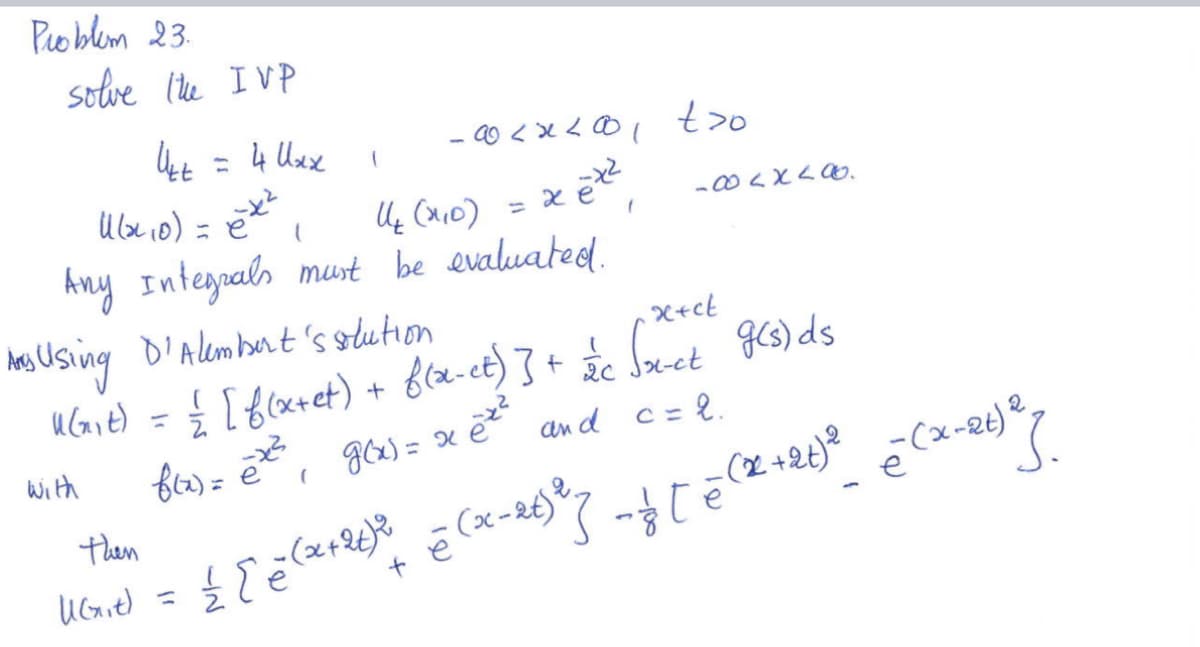 Problem 23.
solve the IVP
Utt = 4 Uxx , -∞ < x < ∞, t>0
U(x,0) = e^{-x²}, Ut(x,0) = x e^{-x²}, -∞ < x < ∞.
Any Integrals must be evaluated.
Using D'Alembert's solution
u(x,t) = 1/2 [f(x+ct) + f(x-ct)] + 1/2c ∫_{x-ct}^{x+ct} g(s) ds
with f(x) = e^{-x²}, g(x) = x e^{-x²} and c = 2.
then
U(x,t) = 1/2 [e^{-(x+2t)²} + e^{-(x-2t)²}] - 1/8 [e^{-(x+2t)²} - e^{-(x-2t)²}].